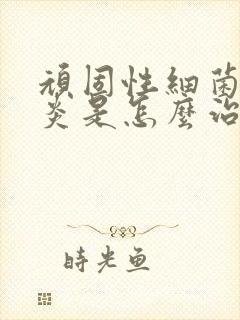 頑固性細菌
炎是怎麼治
時光魚